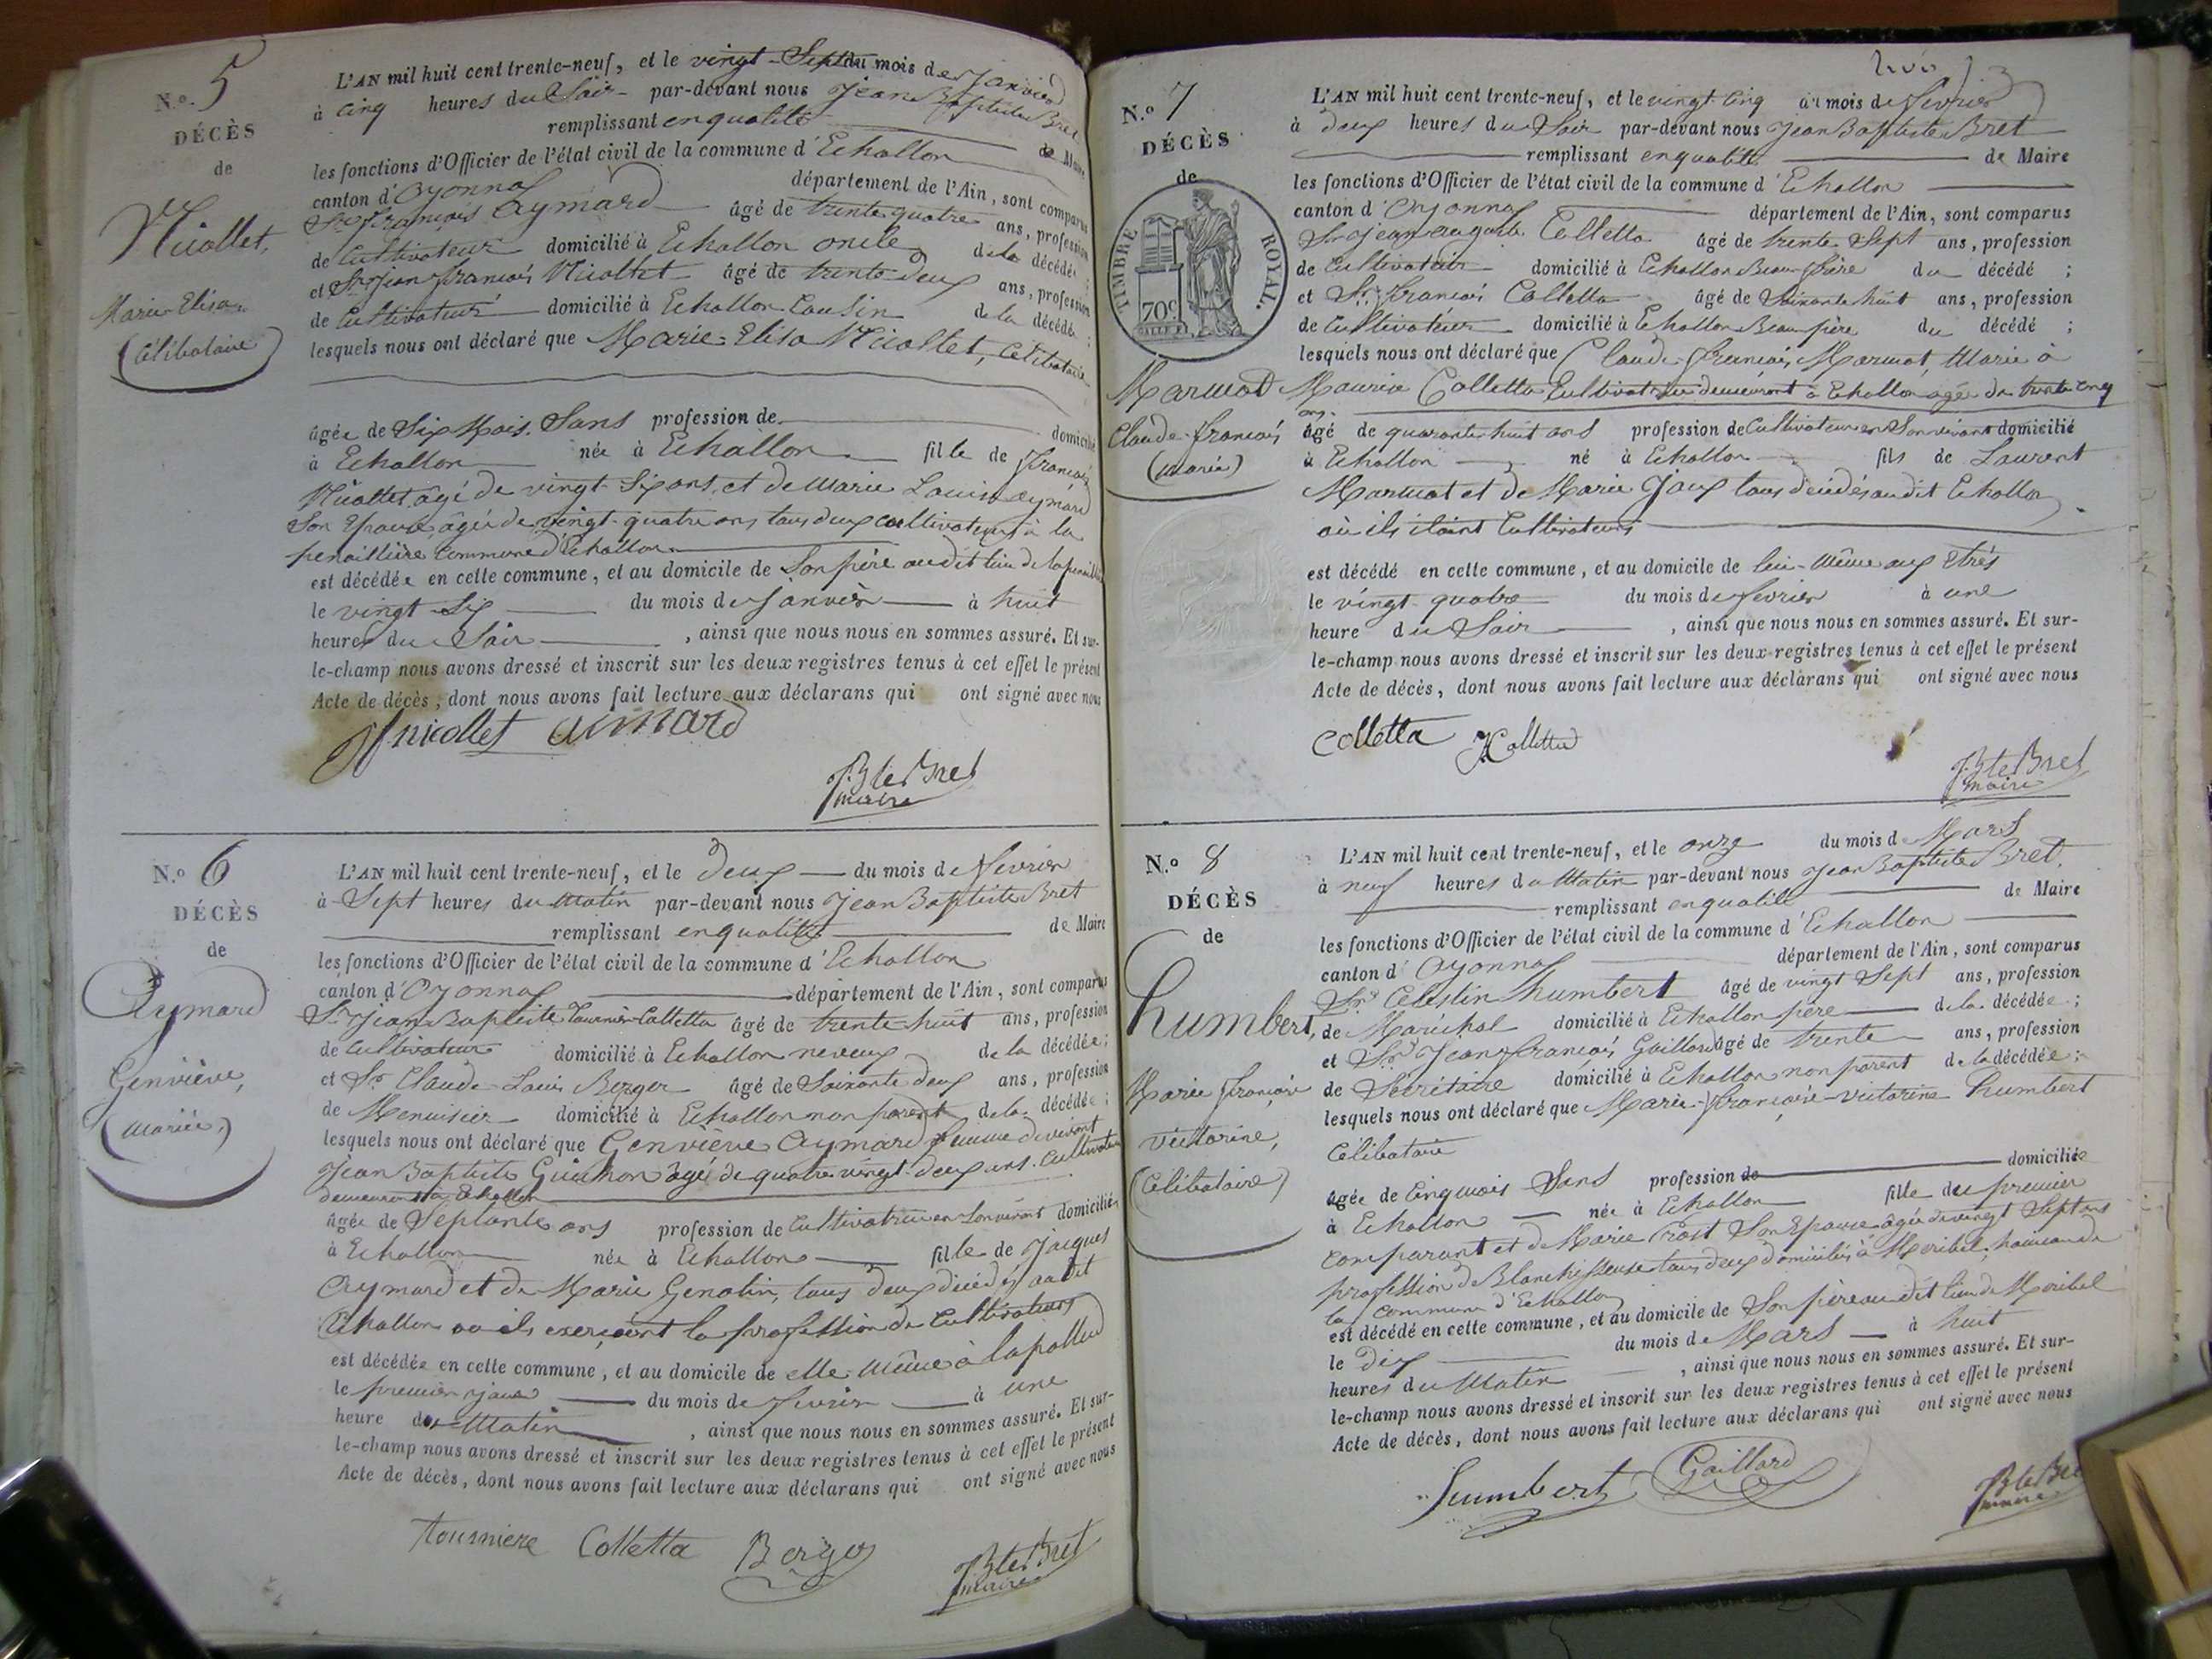 N.º 5
DÉCÈS
de
Nicollet,
Marie Elisa
(Célibataire)
L'AN mil huit cent trente-neuf, et le vingt-Sept du mois de Janvier
à cinq heures du Soir par-devant nous Jean Baptiste Bret
remplissant en qualité de Maire
les fonctions d'Officier de l'état civil de la commune d'Echallon
canton d'Oyonnax département de l'Ain, sont comparus
Sr François Aymard âgé de trente quatre ans, profession
de Cultivateur domicilié à Echallon oncle de la décédée
et Sr Jean François Nicollet âgé de trente-deux ans, profession
de Cultivateur domicilié à Echallon Cousin de la décédée
lesquels nous ont déclaré que Marie-Elisa Nicollet, Célibataire
âgée de Six Mois Sans profession de domicilié
à Echallon née à Echallon fille de François
Nicollet âgé de vingt-Six ans, et de Marie Louise Aymard
Son Epouse, âgée de vingt-quatre ans tous deux cultivateurs à la
penaillière Commune d'Echallon
est décédée en cette commune, et au domicile de Son père audit lieu de
le vingt Six du mois de Janvier à huit
heures du Soir, ainsi que nous nous en sommes assuré. Et sur-
le-champ nous avons dressé et inscrit sur les deux registres tenus à cet effet le présent
Acte de décès, dont nous avons fait lecture aux déclarans qui ont signé avec nous
Jf nicollet aimard
JBte Bret
maire
N.º 6
DÉCÈS
de
Aymard
Genviève,
(Mariée)
L'AN mil huit cent trente-neuf, et le deux du mois de fevrier
à Sept heures du Matin par-devant nous Jean Baptiste Bret
remplissant en qualité de Maire
les fonctions d'Officier de l'état civil de la commune d'Echallon
canton d'Oyonnax département de l'Ain, sont comparus
Sr Jean Baptiste Tournier-Colletta âgé de trente huit ans, profession
de Cultivateur domicilié à Echallon neveux de la décédée;
et Sr Claude Louis Berger âgé de Soixante deux ans, profession
de Menuisier domicilié à Echallon non parent de la décédée;
lesquels nous ont déclaré que Genviève Aymard femme devivant
Jean Baptiste Guichon âgé de quatre vingt-deux ans Cultivateur
demeurant à Echallon
âgée de Septante ans profession de Cultivatrice en Son vivant domiciliée
à Echallon née à Echallon fille de Jacques
Aymard et de Marie Genolin, tous deux décédés audit
Echallon où ils exerçoient la profession de Cultivateurs
est décédée en cette commune, et au domicile de elle-même à lapallud
le premier jour du mois de fevrier à une
heure du Matin, ainsi que nous nous en sommes assuré. Et sur-
le-champ nous avons dressé et inscrit sur les deux registres tenus à cet effet le présent
Acte de décès, dont nous avons fait lecture aux déclarans qui ont signé avec nous
tourniere Colletta Berger
JBte Bret
maire
N.º 7
DÉCÈS
de
TIMBRE ROYAL.
70c
Marmot
Claude-françois
(Marié)
L'AN mil huit cent trente-neuf, et le vingt cinq du mois de fevrier
à deux heures du Soir par-devant nous Jean Baptiste Bret
remplissant en qualité de Maire
les fonctions d'Officier de l'état civil de la commune d'Echallon
canton d'Oyonnax département de l'Ain, sont comparus
Sr Jean auguste Colletta âgé de trente Sept ans, profession
de Cultivateur domicilié à Echallon Beau-frère du décédé;
et Sr françois Colletta âgé de Soixante huit ans, profession
de Cultivateur domicilié à Echallon Beau-père du décédé;
lesquels nous ont déclaré que Claude-françois Marmot, Marié à
Maurise Colletta Cultivatrice demeurant à Echallon agée de trente cinq
ans
âgé de quarante huit ans profession de Cultivateur en Son vivant domicilié
à Echallon né à Echallon fils de Laurent
Marmot et de Marie Jaux tous décédés audit Echallon
où ils étaint Cultivateurs
est décédé en cette commune, et au domicile de lui-même aux Etrès
le vingt-quatre du mois de fevrier à une
heure du Soir, ainsi que nous nous en sommes assuré. Et sur-
le-champ nous avons dressé et inscrit sur les deux registres tenus à cet effet le présent
Acte de décès, dont nous avons fait lecture aux déclarans qui ont signé avec nous
Colletta Colletta
JBte Bret
maire
N.º 8
DÉCÈS
de
humbert,
Marie françoise
victorine,
(Célibataire)
L'AN mil huit cent trente-neuf, et le onze du mois de Mars
à neuf heures du Matin par-devant nous Jean Baptiste Bret,
remplissant en qualité de Maire
les fonctions d'Officier de l'état civil de la commune d'Echallon
canton d'Oyonnax département de l'Ain, sont comparus
Sr Célestin humbert âgé de vingt Sept ans, profession
de Maréchal domicilié à Echallon père de la décédée;
et Sr Jean françois Gaillard âgé de trente ans, profession
de Secrétaire domicilié à Echallon non parent de la décédée;
lesquels nous ont déclaré que Marie-françoise-victorine humbert
Célibataire
âgée de Cinq mois Sans profession de domiciliée
à Echallon née à Echallon fille du premier
comparant et de Marie Crost Son Epouse âgée de vingt Sept ans
profession de Blanchisseuse tous deux domiciliés à Meribel, hameau de
la commune d'Echallon
est décédé en cette commune, et au domicile de Son père audit lieu de Meribel
le dix du mois de Mars à huit
heures du Matin, ainsi que nous nous en sommes assuré. Et sur-
le-champ nous avons dressé et inscrit sur les deux registres tenus à cet effet le présent
Acte de décès, dont nous avons fait lecture aux déclarans qui ont signé avec nous
humbert Gaillard
JBte Bret
maire